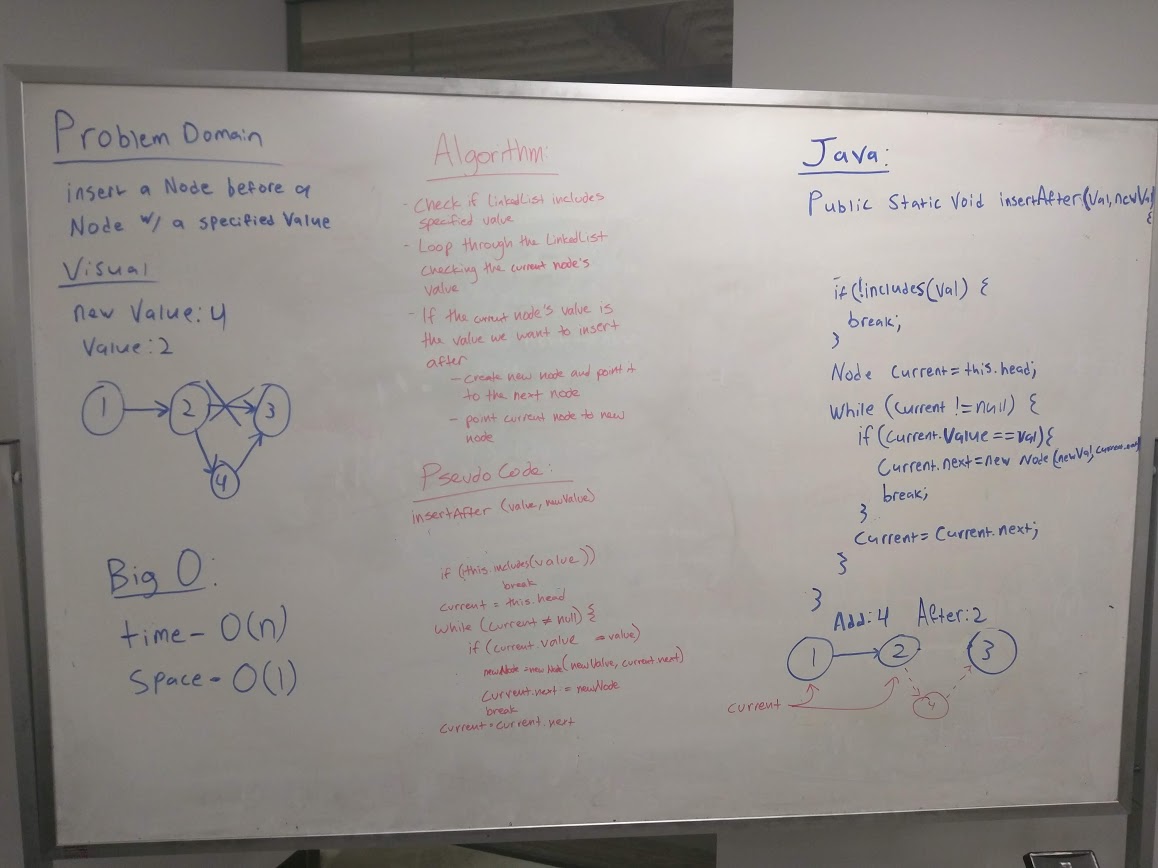 Problem Domain
insert a Node before a
Node w/ a specified Value
Visual
new Value: 4
Value: 2
1 2 3
4
Big O:
time - O(n)
Space - O(1)
Algorithm:
- Check if LinkedList includes
specified value
- Loop through the LinkedList
checking the current node's
value
- If the current node's value is
the value we want to insert
after
- create new node and point it
to the next node
- point current node to new
node
Pseudo Code:
insertAfter (value, newValue)
if (!this.includes(value))
break
current = this.head
while (current ≠ null) {
if (current.value = value)
newNode = new Node(newValue, current.next)
current.next = newNode
break
current = current.next
Java:
Public Static Void insertAfter(Val, newVal
{
if (!includes(Val) {
break;
}
Node Current = this.head;
While (Current != null) {
if (Current.Value == Val){
Current.next = new Node(newVal, current.next
break;
}
Current = Current.next;
}
}
Add: 4 After: 2
1 2 3
4
Current